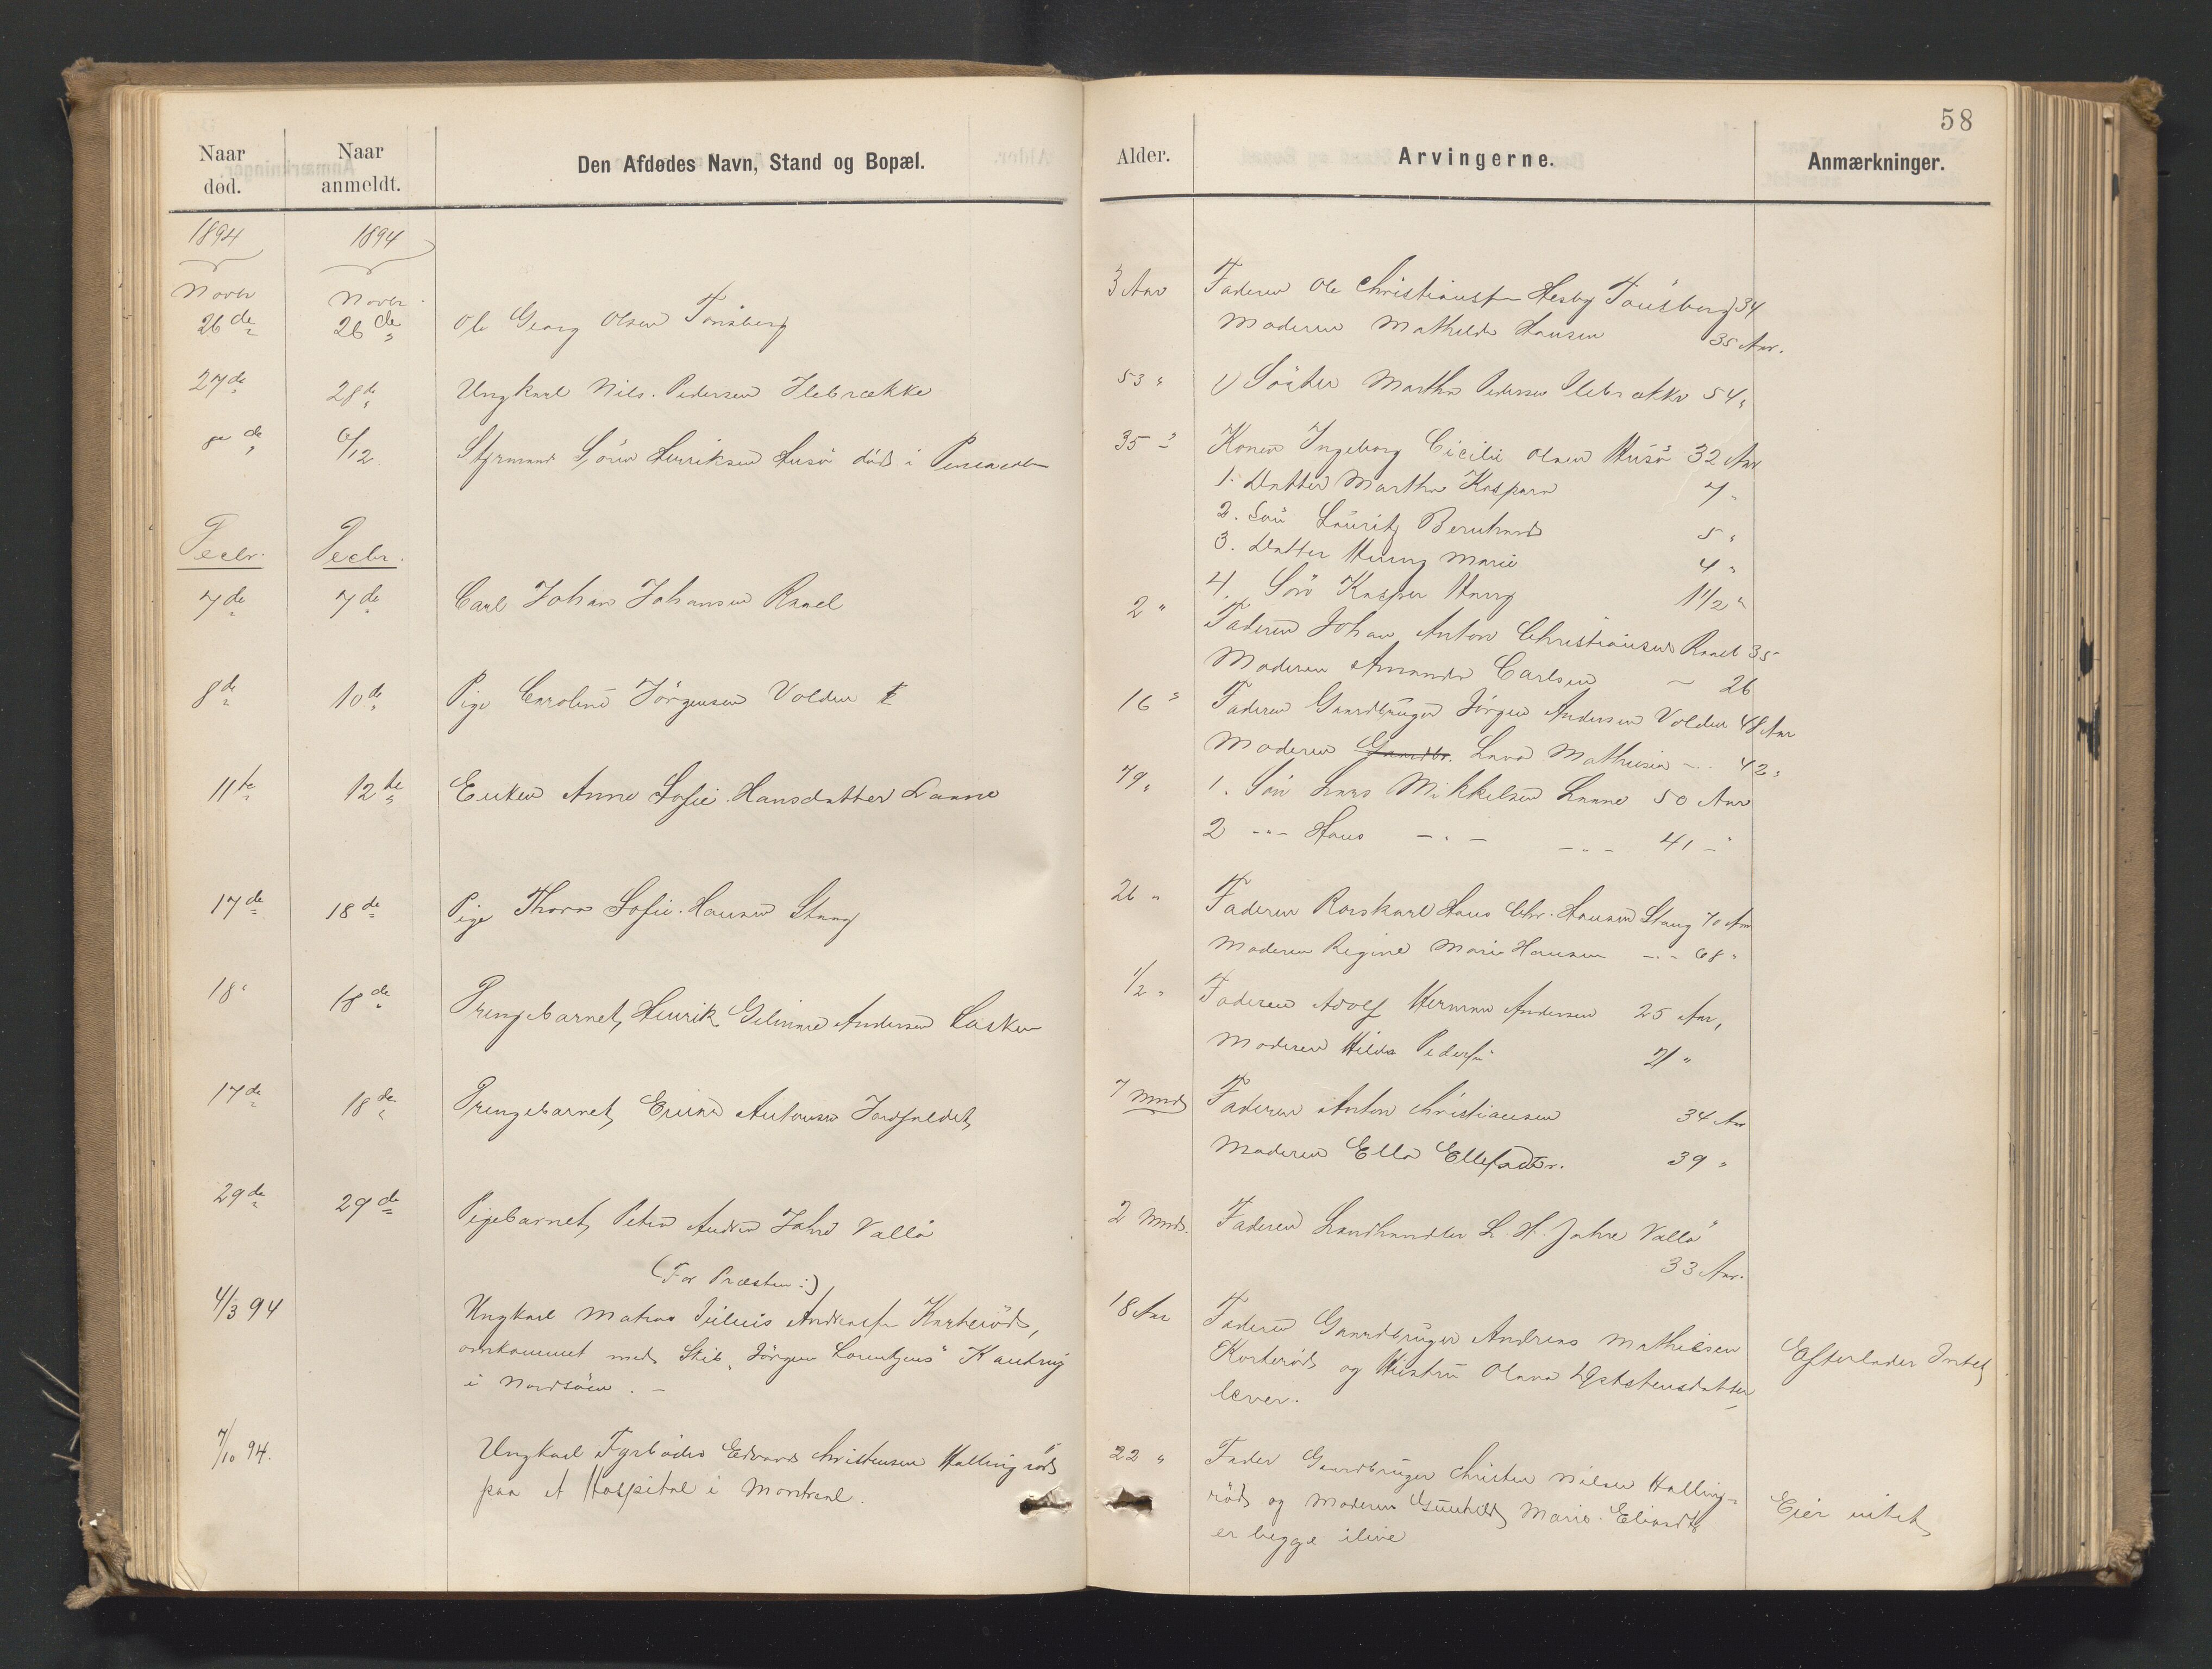 58
Naar død.
Naar anmeldt.
Den Afdødes Navn, Stand og Bopæl.
Alder.
Arvingerne.
Anmærkninger.
1894
1894
Novbr
Novbr.
26de
26de
Ole Georg Olsen Tönsberg
3 Aar
Faderen Ole Christiansen Hesby Tönsberg 34
Moderen Mathilde Hansen 35 Aar.
27de
28de
Ungkarl Nils. Pedersen Ilebrække
53 "
1) Söster Marthe Pedersen Ilebrække 54 "
de
6/12
Styrmand Sören Henriksen Husö död i Pensacola
35 "
Konen Ingeborg Cicilie Olsen Husö 32 Aar
1. Datter Martha Kaspara 7 "
2. Sön Lauritz Bernhard 5 "
3. Datter Marie 4 "
4. Sön Kasper Harry 1 1/2 "
Decbr.
Decbr.
7de
7de
Carl Johan Johansen Rael
2 "
Faderen Johan Anton Christiansen Rael 35
Moderen Amanda Carlsen – 26
8de
10de
Pige Caroline Jörgensen Volden
16 "
Faderen Gaardbruger Jörgen Andersen Volden 48 Aar
Moderen Gaardbr. Lava Mathisen – 42 "
11te
12te
Enken Anne Sofie Hansdatter Laane
79 "
1. Sön Lars Mikkelsen Laane 50 Aar
2 –"– Hans –"– –"– 41 –"
17de
18de
Pige Thora Sofie Hansen Stang
26 "
Faderen Rorskarl Hans Chr. Hansen Stang 70 Aar
Moderen Regine Marie Hansen –"– 68 "
18 "
18de
Drengebarnet, Henrik Andersen
1/2 "
Faderen Adolf Herman Andersen 25 Aar,
Moderen Hilda Peders. 21 "
17de
18de
Drengebarnet, Einar Antonsen Jordfaldet,
7 Mnd
Faderen Anton Christiansen 34 Aar
Moderen Ella Ellefsdtr. 39 "
29de
29de
Pigebarnet, Petra Andrea Jahre Vallö
2 Mnd.
Faderen Landhandler L. H. Jahre Vallö
33 Aar.
(For Præsten:)
4/3 94
Ungkarl Matros Julius Andreasen Korteröd,
omkommet med Skib „Jörgen Lorentzens"
i Nordsöen. –
18 Aar
Faderen Gaardbruger Andreas Mathisen
Korteröd og Hustru Olava
lever.
Efterlader Intet
7/10 94.
Ungkarl Fyrböder Edvard Christensen Hallingröd
paa et Hospital i Montreal.
22 "
Fader Gaardbruger Christen Nilsen Halling-
röd og Moderen Gunhild Marie
er begge ilive
Eier intet